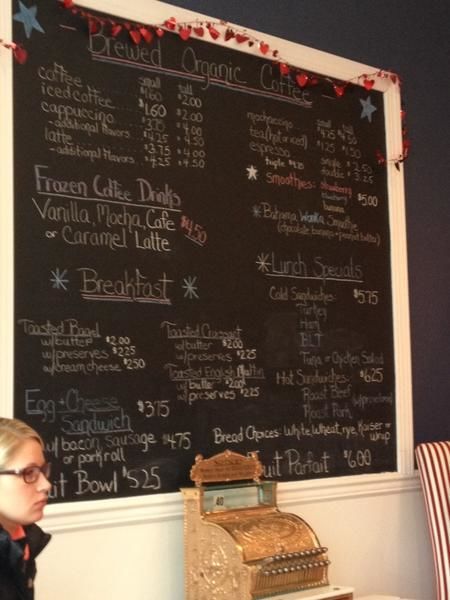 Brewed Organic Coffee
small tall
coffee $1.60 $2.00
iced coffee $1.60 $2.00
cappuccino $3.75 $4.00
- additional flavors $4.25 $4.50
latte $3.75 $4.00
- additional flavors $4.25 $4.50
small tall
mochaccino $4.25 $4.50
tea (hot or iced) $1.25 $1.50
espresso single
double
triple
Smoothies: strawberry
blueberry $5.00
banana
Bahama Wanka Smoothie
(chocolate banana + peanut butter)
Frozen Coffee Drinks
Vanilla, Mocha, Cafe $4.50
or Caramel Latte
Breakfast
Toasted Bagel
w/butter $2.00
w/preserves $2.25
w/cream cheese $2.50
Toasted Croissant
w/butter $2.00
w/preserves $2.25
Toasted English Muffin
w/butter $2.00
w/preserves $2.25
Egg + Cheese
Sandwich $3.75
w/ bacon, sausage $4.75
or pork roll
uit Bowl $5.25
Lunch Specials
Cold Sandwiches: $5.75
Turkey
Ham
BLT
Tuna or Chicken Salad
Hot Sandwiches: $6.25
Roast Beef
Roast Pork
Bread Choices: White, Wheat, rye, Kaiser or
wrap
uit Parfait $6.00
40